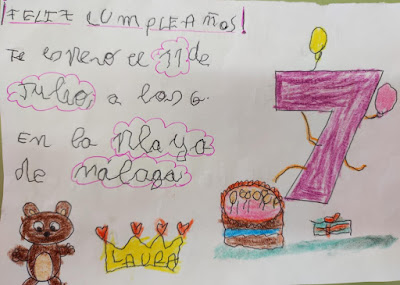 ¡FELIZ CUMPLEAÑOS!
Te espero el 11 de
Julio, a las 6.
En la Playa
de malaga
7
LAURA